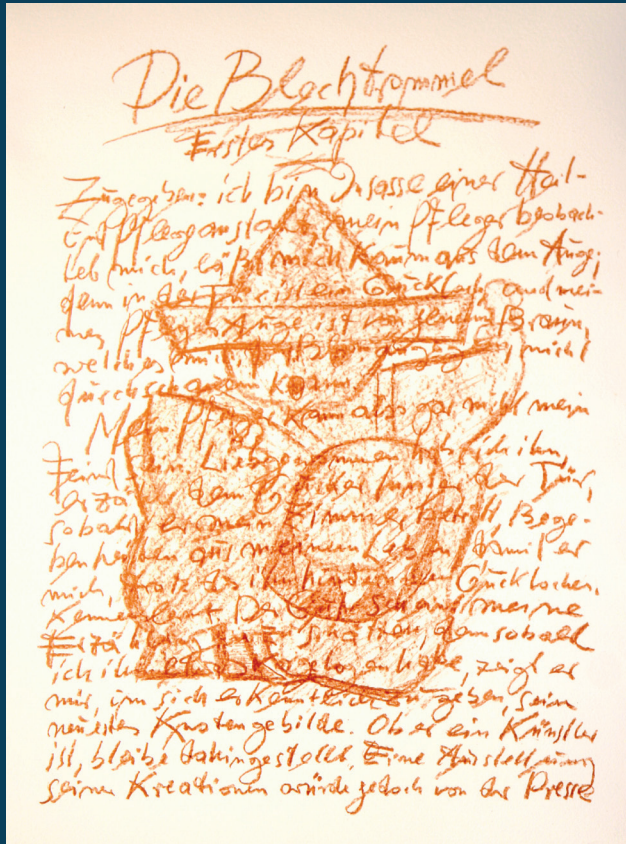 Die Blechtrommel
Erstes Kapitel
Zugegeben: ich bin Insasse einer Heil-
und Pfleganstalt, mein Pfleger beobach-
tet mich, läßt mich kaum aus dem Auge;
denn in der Tür ist ein Guckloch, und mei-
nes Pflegers Auge ist von jenem Braun,
welches mich, den Blauäugigen, nicht
durchschauen kann.
Mein Pfleger kann also gar nicht mein
Feind sein. Liebgewonnen habe ich ihn,
erzähle dem Gucker hinter der Tür,
sobald er mein Zimmer betritt, Bege-
benheiten aus meinem Leben, damit er
mich, trotz des ihn hindernden Guckloches,
kennenlernt. Der Gute scheint meine
Erzählungen zu schätzen, denn sobald
ich ihm etwas vorgelogen habe, zeigt er
mir, um sich erkenntlich zu geben, sein
neuestes Knotengebilde. Ob er ein Künstler
ist, bleibe dahingestellt. Eine Ausstellung
seiner Kreationen würde jedoch von der Presse